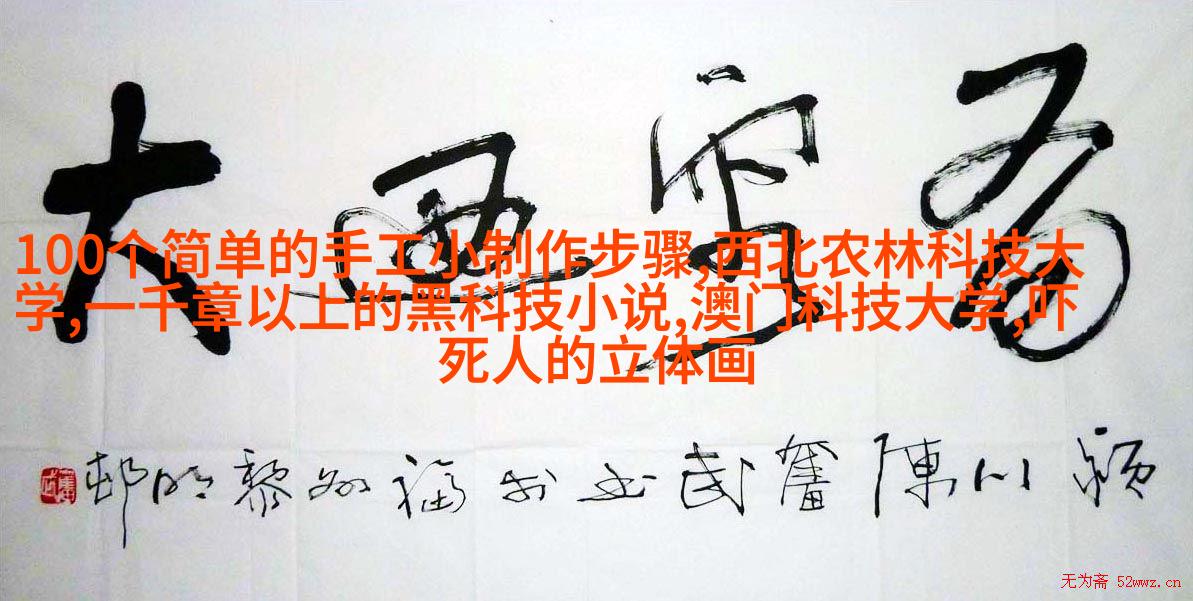 大
100个简单的手工小制作步骤,西北农林科技大
学,一千章以上的黑科技小说,澳门科技大学,吓
死人的立体画
川陳奮武书於福州黎明邨
无为斋 52wwz.cn